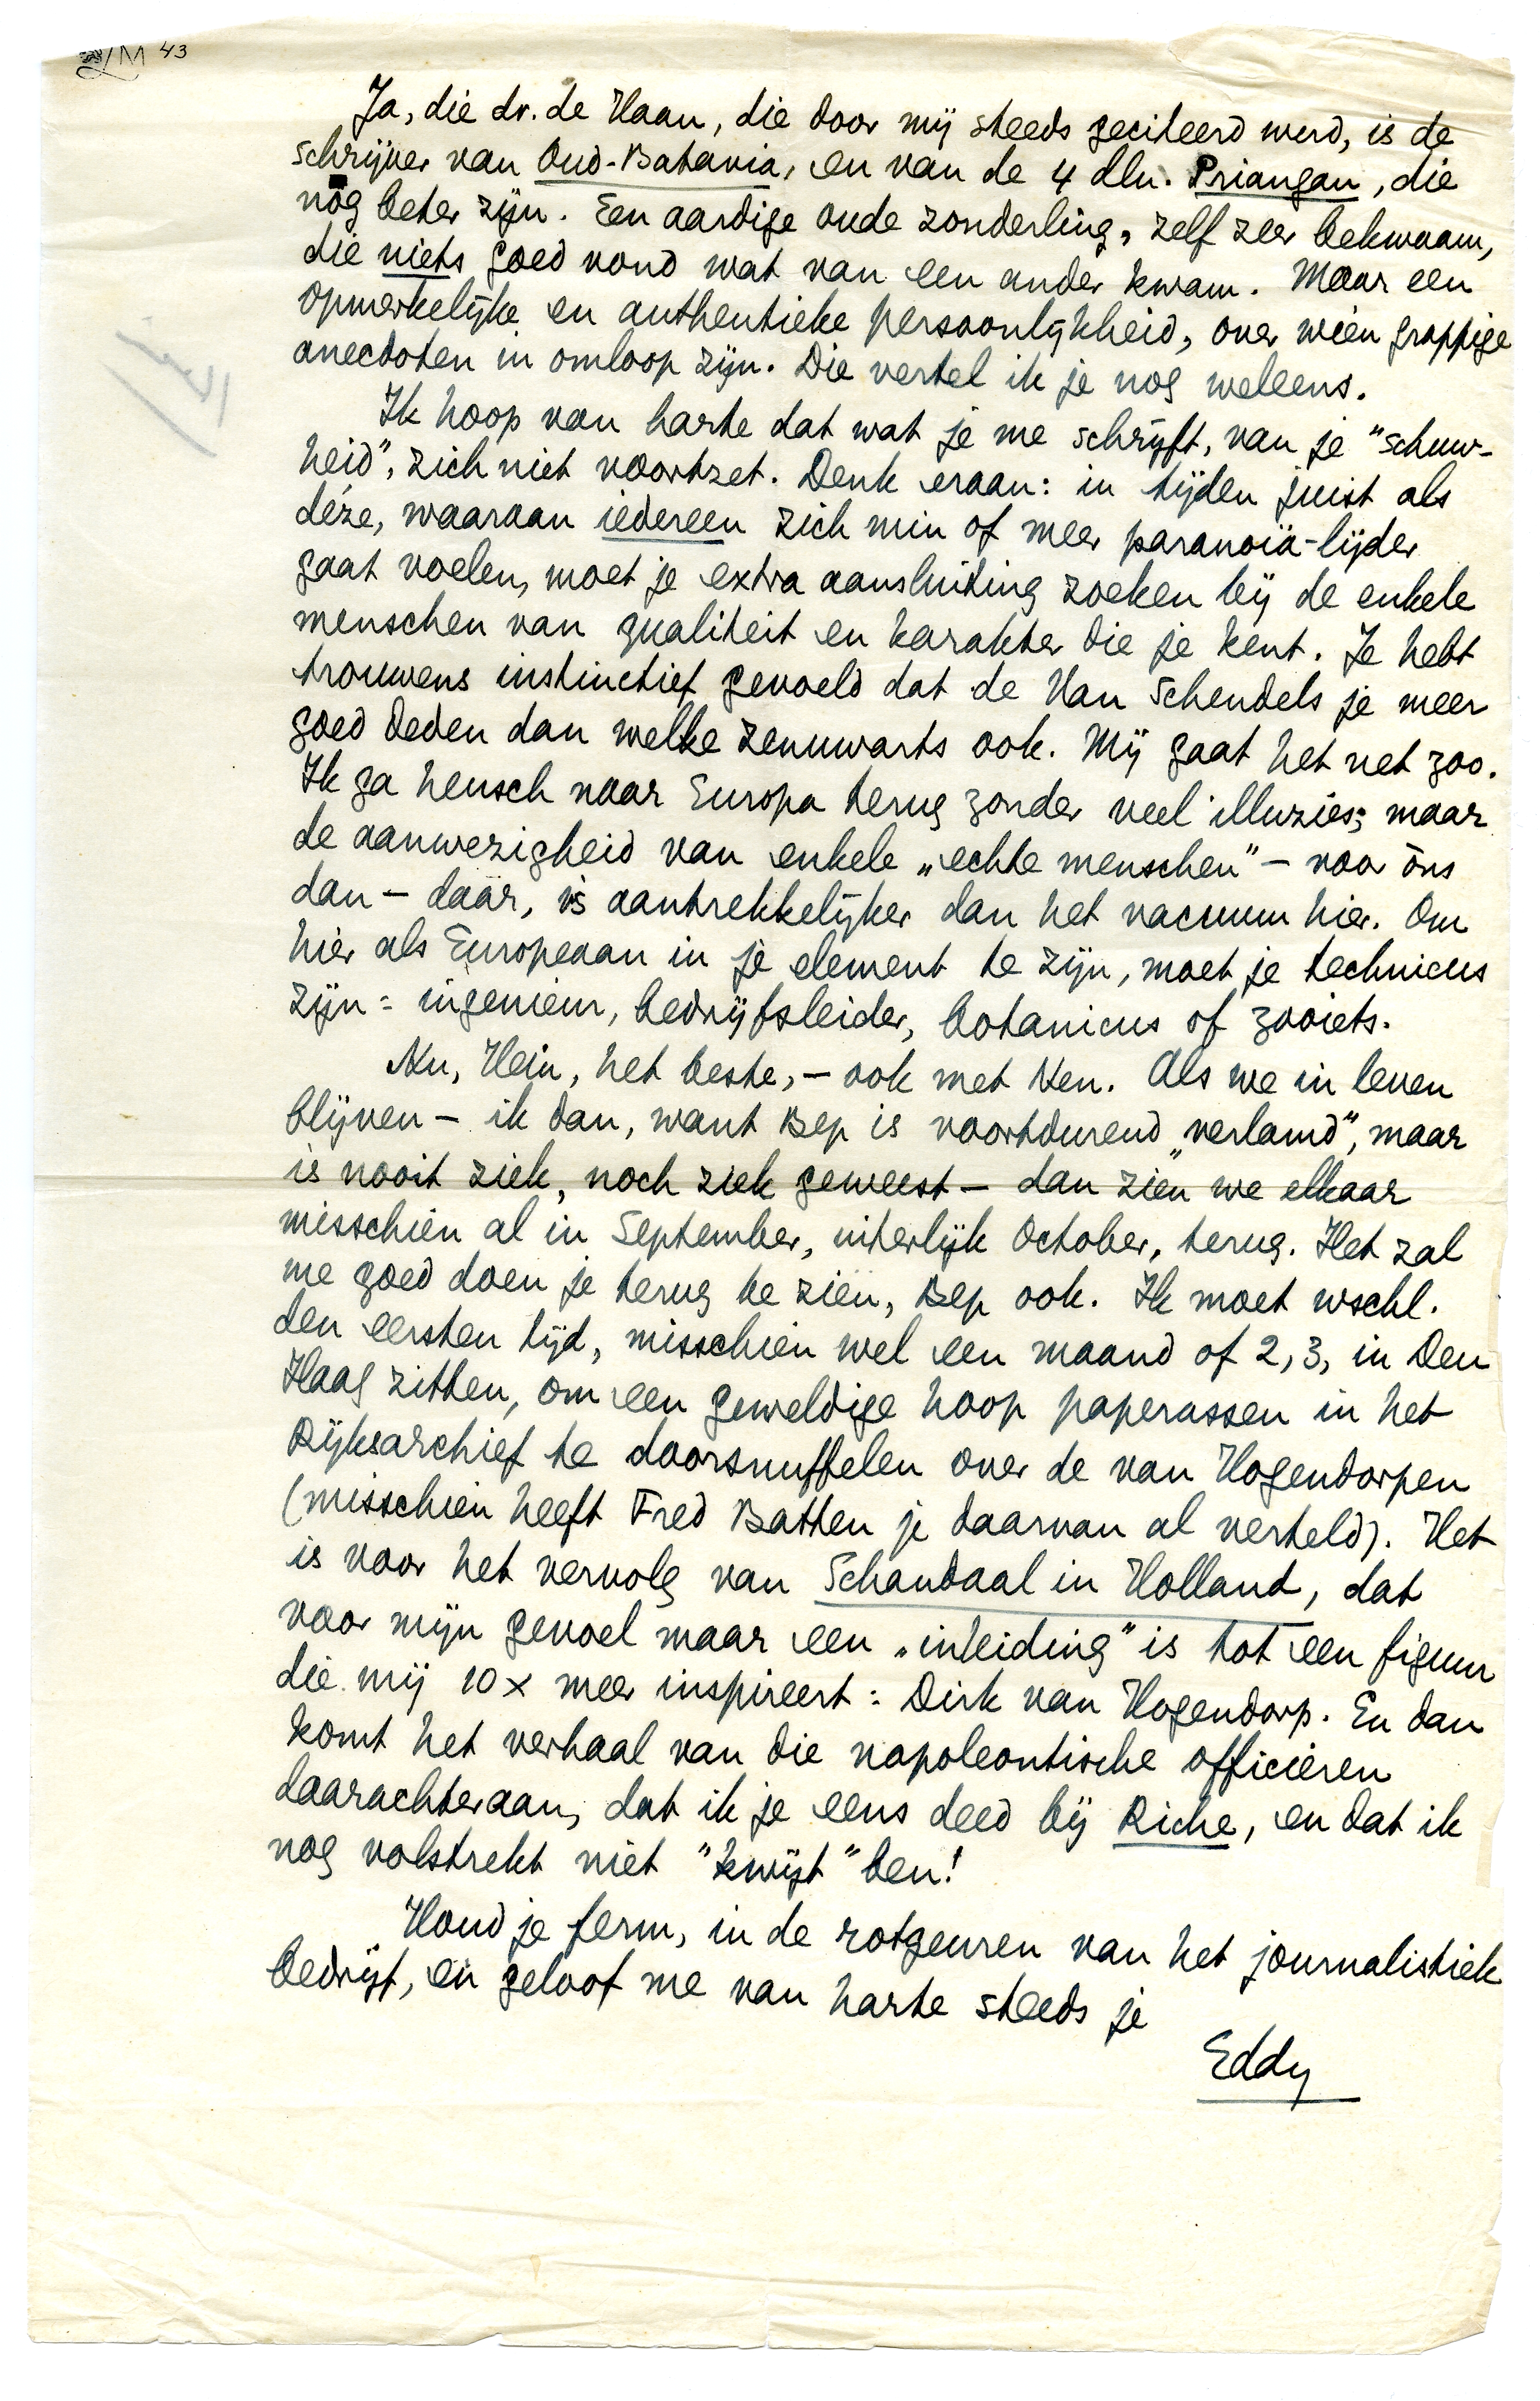 LM 43
Ja, die dr. de Haan, die door mij steeds geciteerd werd, is de
schrijver van Oud-Batavia, en van de 4 dln. Priangan, die
nòg beter zijn. Een aardige oude zonderling, zelf zeer bekwaam,
die niets goed vond wat van een ander kwam. Maar een
opmerkelijke en authentieke persoonlijkheid, over wien grappige
anecdoten in omloop zijn. Die vertel ik je nog weleens.
Ik hoop van harte dat wat je me schrijft, van je "schuw-
heid", zich niet voortzet. Denk eraan: in tijden juist als
déze, waarvan iedereen zich min of meer paranoïa-lijder
gaat voelen, moet je extra aansluiting zoeken bij de enkele
menschen van qualiteit en karakter die je kent. Je hebt
trouwens instinctief gevoeld dat de Van Schendels je meer
goed deden dan welke zenuwarts ook. Mij gaat het net zoo.
Ik ga heusch naar Europa terug zonder veel illuzies; maar
de aanwezigheid van enkele „echte menschen" – voor òns
dan – dáár, is aantrekkelijker dan het vacuum hier. Om
hier als Europeaan in je element te zijn, moet je technicus
zijn: ingenieur, bedrijfsleider, botanicus of zooiets.
Nu, Hein, het beste, – ook met Ken. Als we in leven
blijven – ik dan, want Bep is voortdurend „verlamd", maar
is nooit ziek, noch ziek geweest – dan zien we elkaar
misschien al in September, uiterlijk October, terug. Het zal
me goed doen je terug te zien, Bep ook. Ik moet wschl.
den eersten tijd, misschien wel een maand of 2, 3, in Den
Haag zitten, om een geweldige hoop paperassen in het
Rijksarchief te doorsnuffelen over de van Hogendorpen
(misschien heeft Fred Batten je daarvan al verteld). Het
is voor het vervolg van Schandaal in Holland, dat
voor mijn gevoel maar een „inleiding" is tot een figuur
die mij 10 x meer inspireert: Dirk van Hogendorp. En dan
komt het verhaal van die napoleontische officieren
daarachteraan, dat ik je eens deed bij Riche, en dat ik
nog volstrekt niet "kwijt" ben!
Houd je ferm, in de rotgeuren van het journalistiek
bedrijf, en geloof me van harte steeds je
Eddy